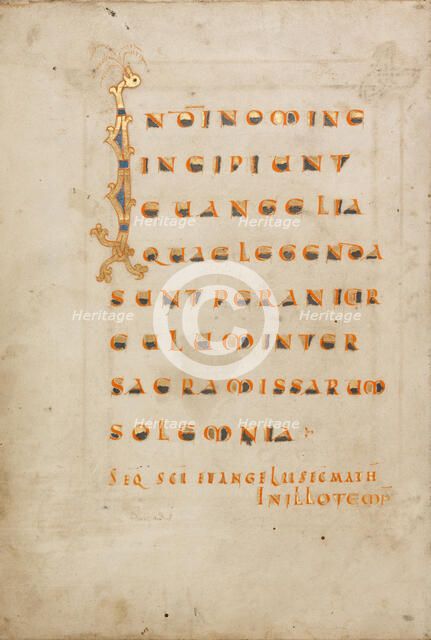 IN DN̄I NOMINE
INCIPIUNT
EUANGELIA
QUAE LEGENDA
SUNT PER ANI CIR
CULUM INTER
SACRA MISSARUM
SOLEMNIA
SEQ SCI EUANGELII SEC MATH
IN ILLO TEMP
Heritage
Heritage
Heritage
Heritage
Heritage
Heritage
Heritage
Heritage